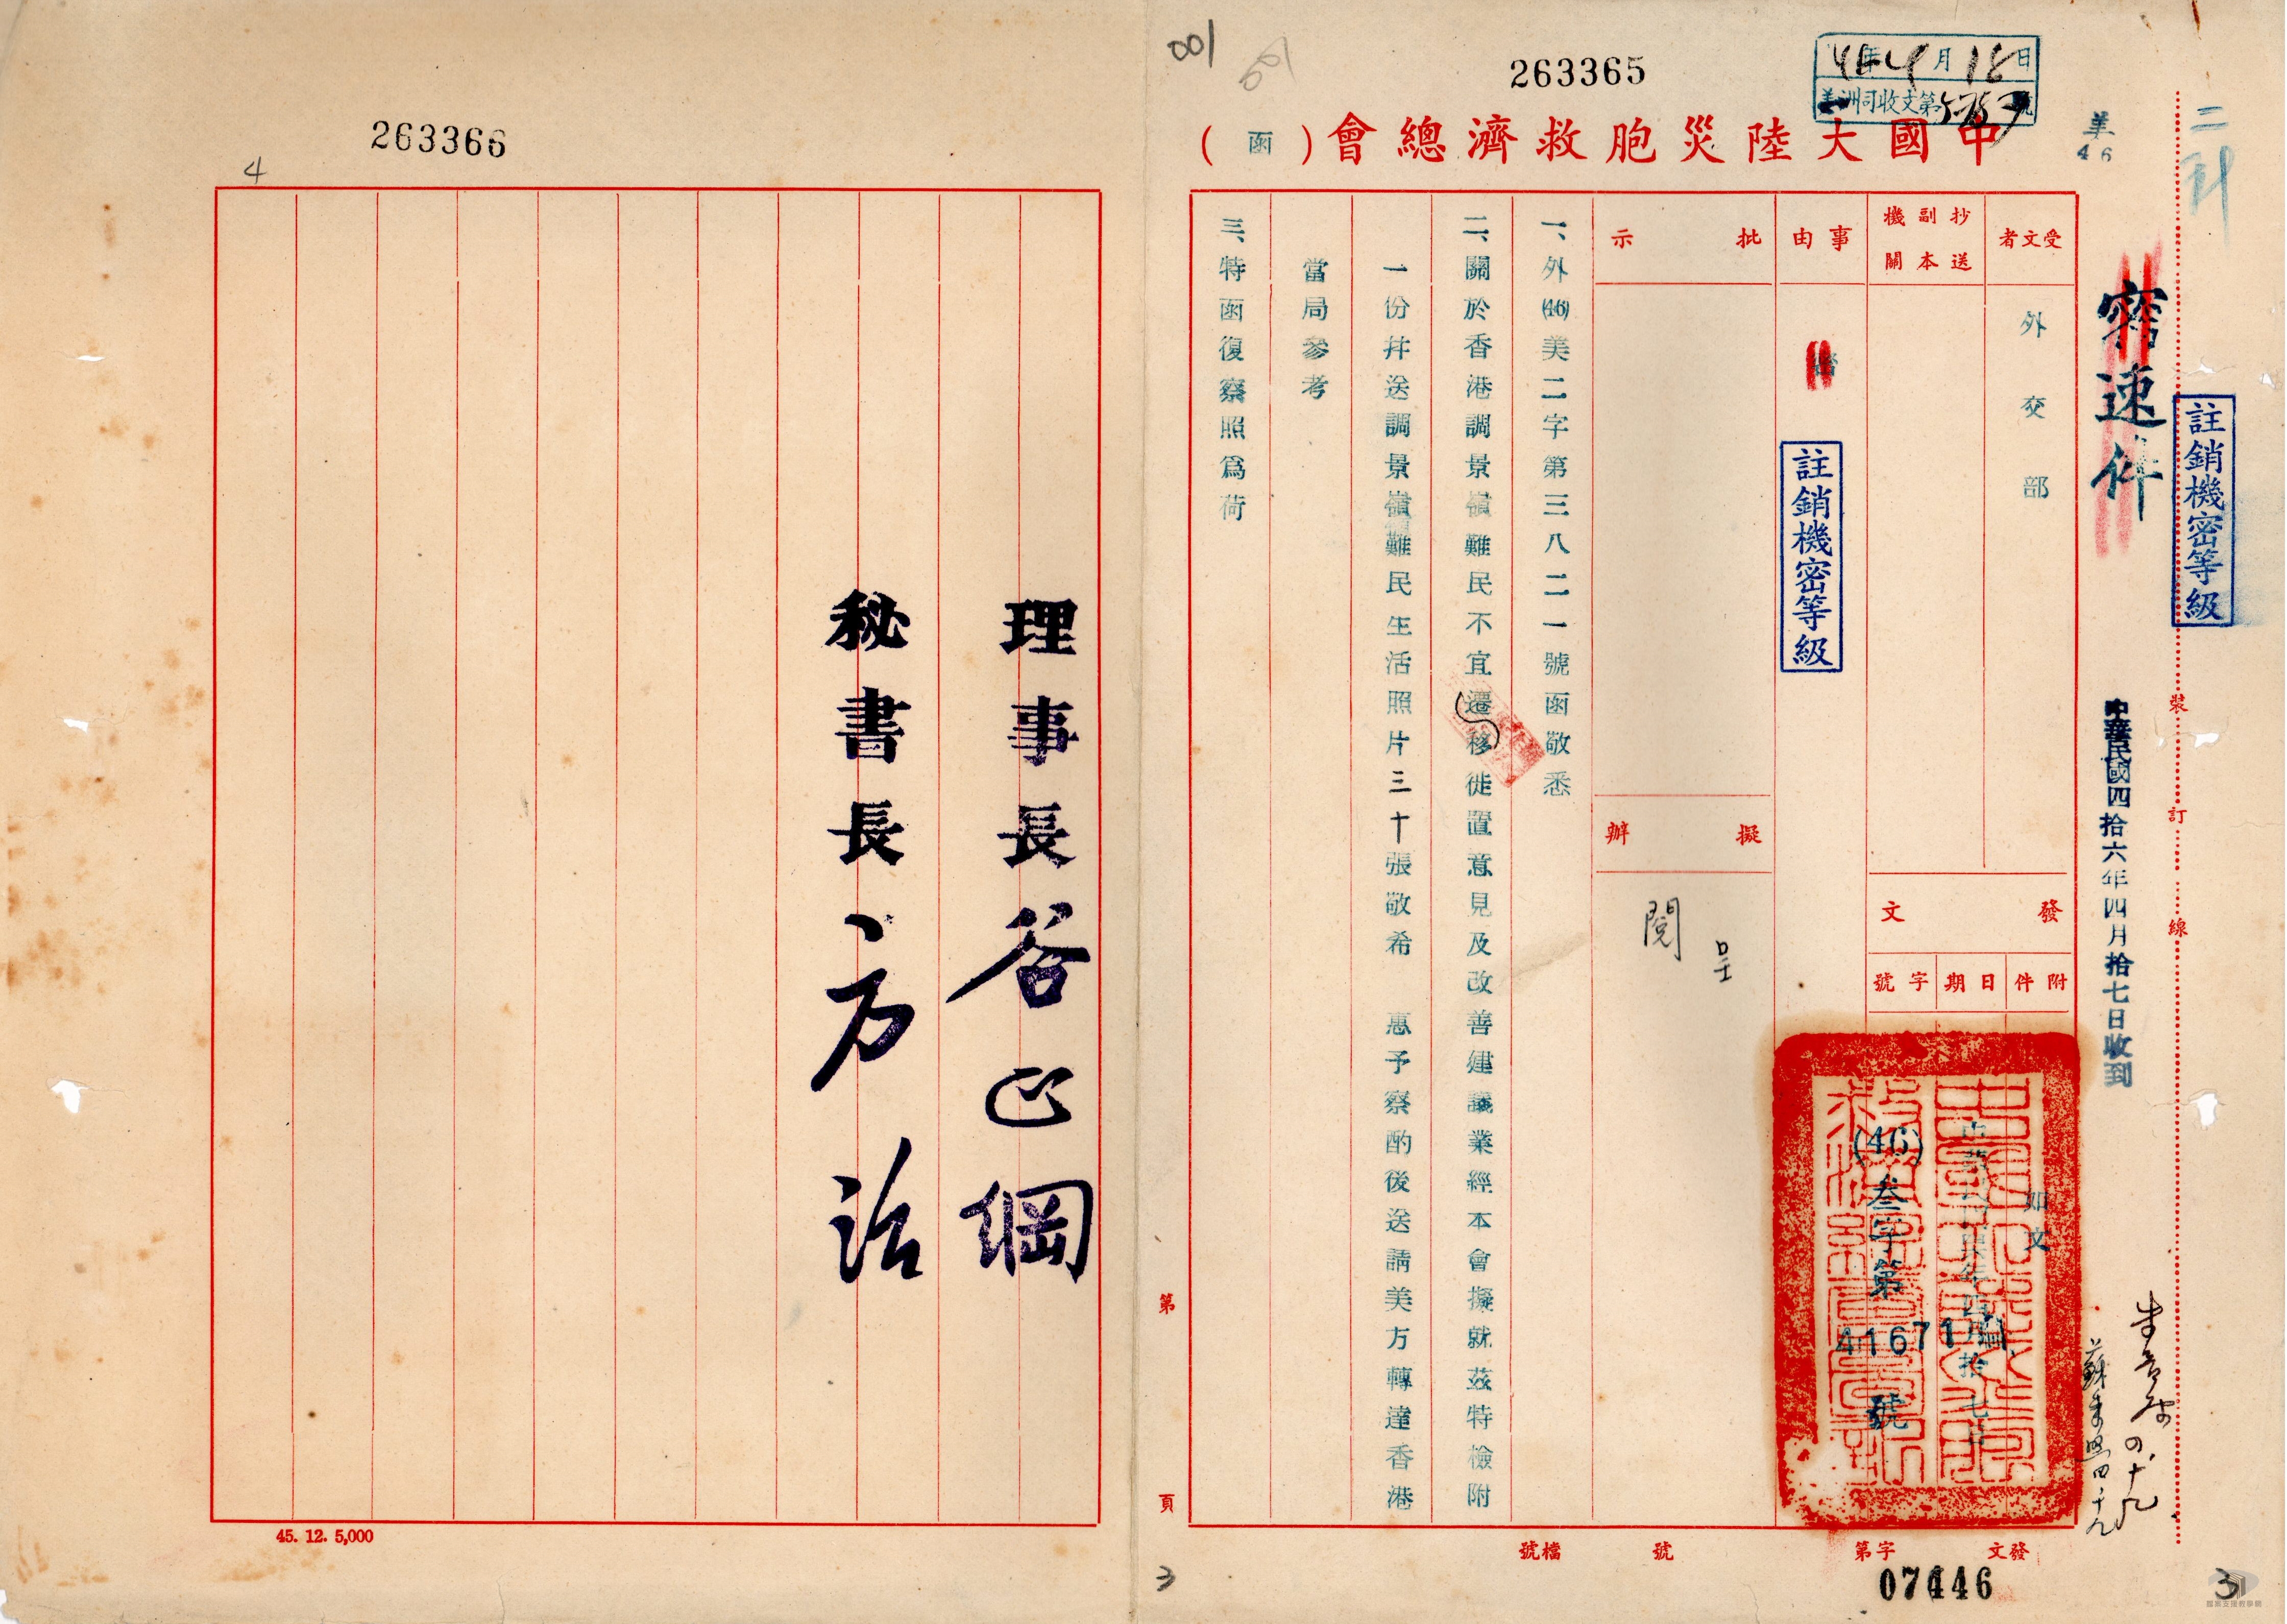 001
263365
年4月18日
美洲司收文第5757號
中國大陸災胞救濟總會(函)
美
46
密
速件
註銷機密等級
中華民國四拾六年四月拾七日收到
裝訂線
受文者
外交部
抄送副本機關
事由
密
註銷機密等級
批示
擬辦
呈
閱
發文
附件
如文
日期
字號
(46)叁字第
41671
號
一、外(46)美二字第三八二一號函敬悉
二、關於香港調景嶺難民不宜遷移徙置意見及改善建議業經本會擬就茲特檢附
一份并送調景嶺難民生活照片三十張敬希 惠予察酌後送請美方轉達香港
當局參考
三、特函復察照爲荷
第 頁
發文字第 號
檔號
07446
3
3
263366
4
理事長谷正綱
秘書長方治
45. 12. 5,000